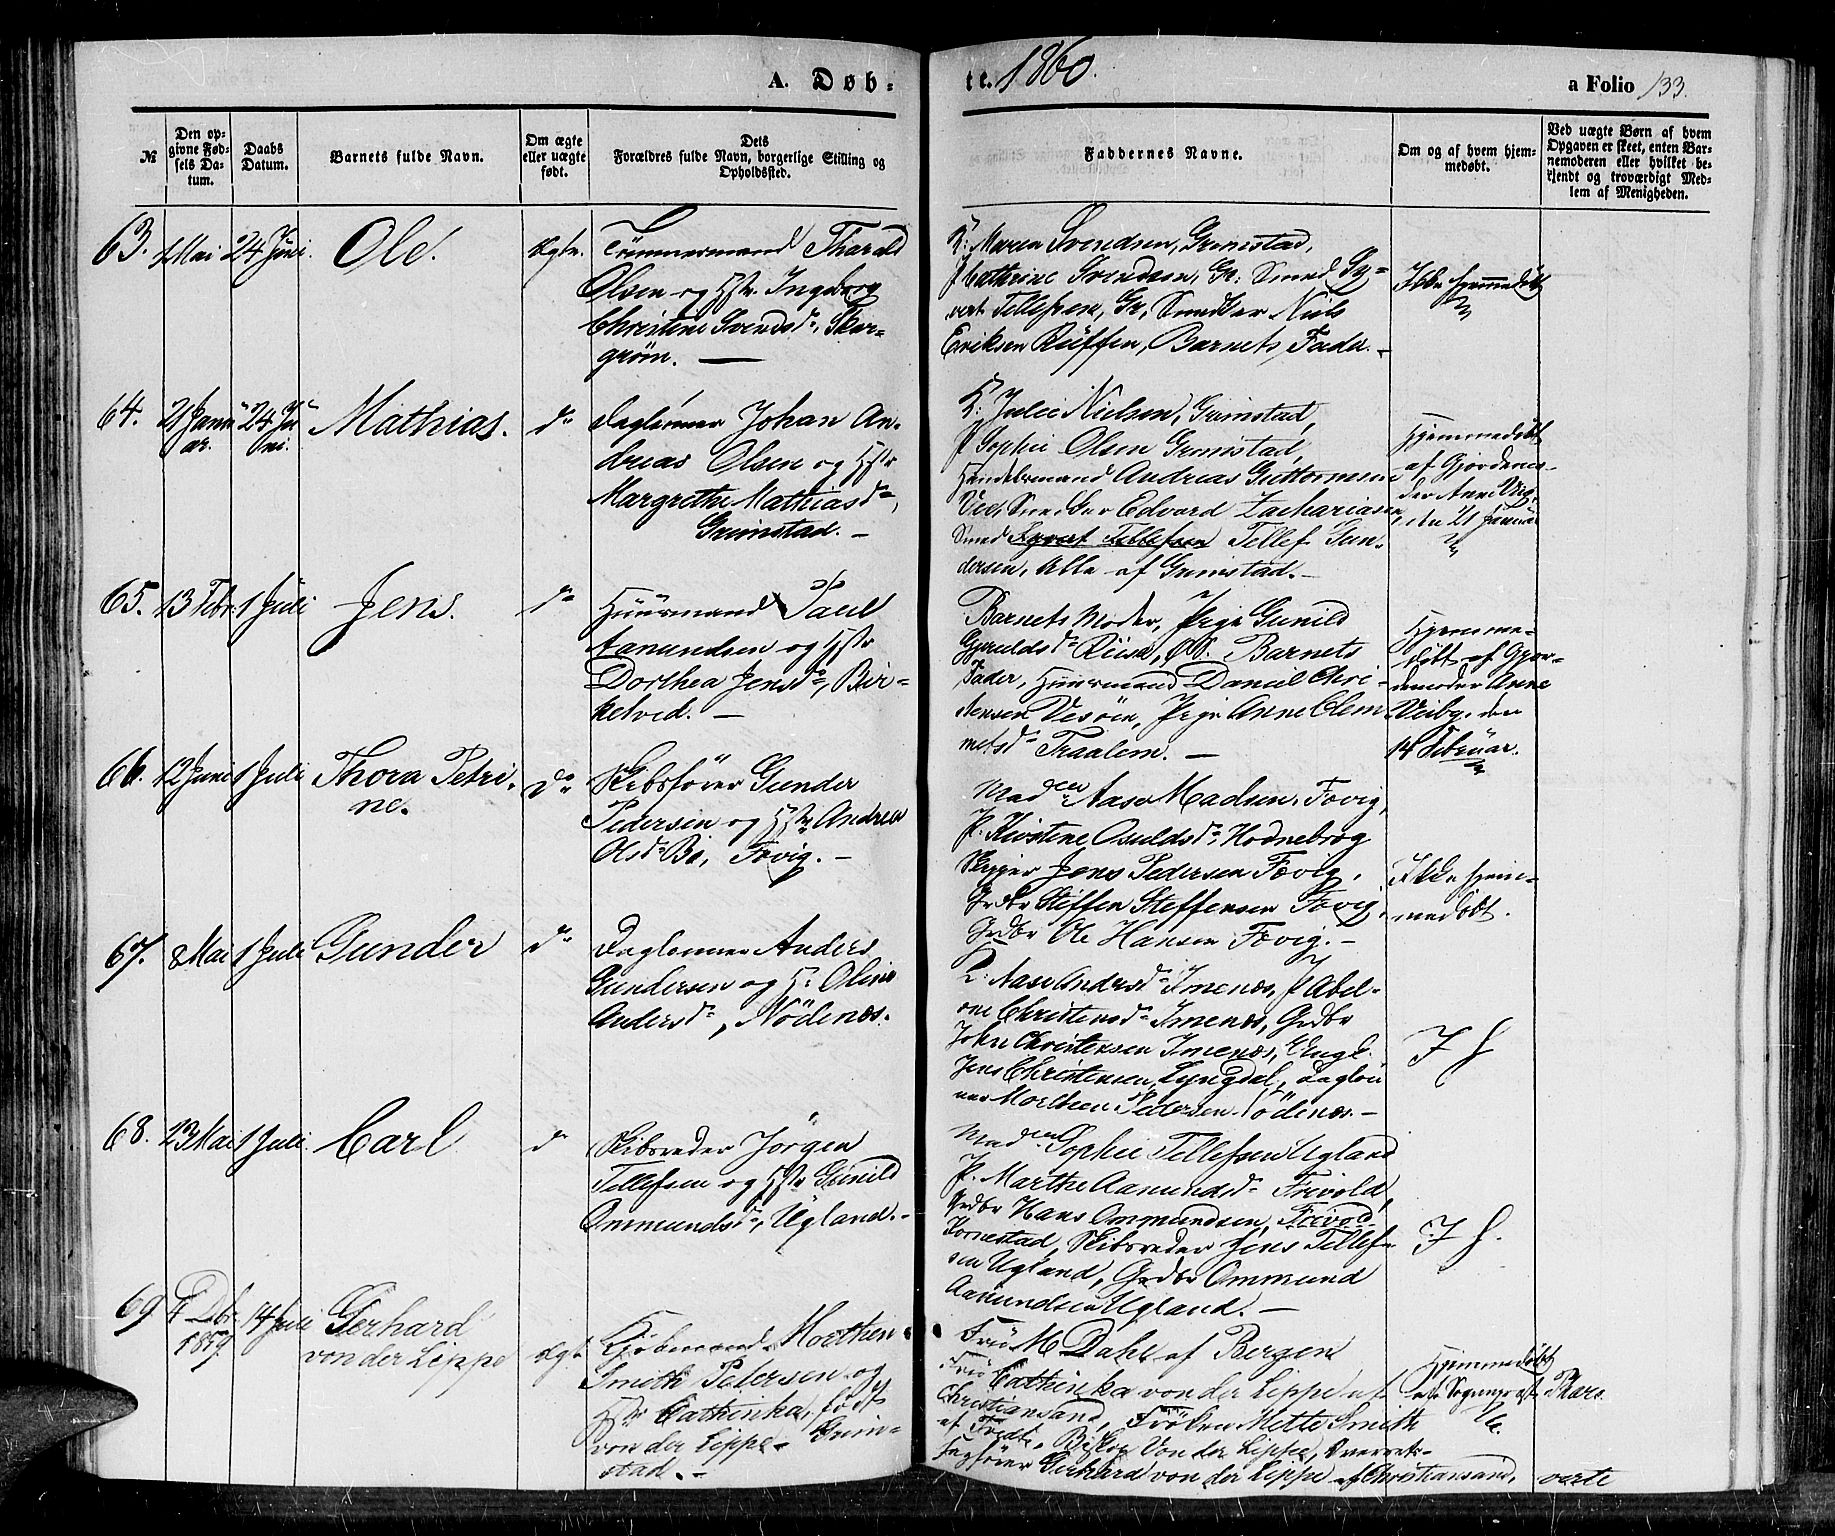 A. Døb-
te. 1860.
a Folio 133.
№
Den op-
givne Fød-
sels Da-
tum.
Daabs
Datum.
Barnets fulde Navn.
Om ægte
eller uægte
født.
Dets
Forældres fulde Navn, borgerlige Stilling og
Opholdssted.
Faddernes Navne.
Om og af hvem hjem-
medøbt.
Ved uægte Børn af hvem
Opgaven er skeet, enten Bar-
nemoderen eller hvilket be-
kjendt og troværdigt Med-
lem af Menigheden.
63. 1 Mai 24 Juni. Ole. ægte.
Tømmermand Tharald
Olsen og Hstr. Ingeborg
Christine Svendsdr,
grøm. —
K: Maren Svendsen, Grimstad,
P Cathrine Svendsen, Gr: Smed Sy-
vert Tellefsen, Gr, Niels
Eriksen Rüffen, Barnets Fader. —
Ikke hjemmedøbt
64. 21 Janu-
ar. 24 Ju-
ni. Mathias. do
Daglønner Johan An-
dreas Olsen og Hstr
Margrethe Mathiasdr,
Grimstad. —
K: Julie Nielsen, Grimstad,
P Sophie Olsen Grimstad,
Handelsmand Andreas Guttormsen
Edvard Zachariasen
Smed Syvert Tellefsen Tellef Gun-
dersen, Alle af Grimstad. —
Hjemmedøbt
af Gjordemo-
der Anne
den 21 Januar
65. 13 Febr. 1 Juli Jens. do
Huusmand Paul
Aanundsen og Hstr
Dorthea Jensdr, Bir-
ketved. —
Barnets Moder, Pige Gunild
Gjeruldsdr Barnets
Fader, Huusmand Daniel Chri-
stensen Vesøen, Pige Anne Clem-
metsdr Traalem. —
Hjemme-
døbt af Gjor-
demoder Anne
Veiby. den
14 Februar.
66. 12 Juni 1 Juli Thora Petri-
ne. do
Skibsfører Gunder
Pedersen og Hstr Andrea
Olsdr Bo, Fævig. —
Mad Aase Madsen, Fævig,
P. Kirstine Osuldsdr Hodnebrog
Skipper Jens Pedersen Fævig,
Grdbr Steffen Steffensen Fævig,
Grdbr Ole Hansen Fævig. —
Ikke hjem-
medøbt.
67. 8 Mai 1 Juli Gunder do
Daglønner Anders
Gundersen og H: Oline
Andersdr, Nödenæs.
K: Aase Andersdr Imenæs, P Abel-
one Christensdr Imenæs, Grdbr
John Christensen Imenæs, Ungk.
Jens Christensen Lyngdal, Dagløn-
ner Morthen Pedersen Nödenæs. —
I h
68. 13 Mai 1 Juli Carl do
Skibsreder Jörgen
Tellefsen og Hstr Gunild
Ommundsdr, Ugland. —
Mad Sophie Tellefsen Ugland
P. Marthe Aanundsdr Frivold,
Grdbr Hans Ommundsen,
Skibsreder Jens Tellef-
sen Ugland, Grdbr Ommund
Aanundsen Ugland. —
I h.
69 4 Dbr
1859. 14 Juli Gerhard
von der Lippe ægt.
Kjøbmand Morthen
Smith Petersen og
Hstr Cathinka, født
von der Lippe. Grim-
stad. —
Frü M Dahl af Bergen
Frü Cathinka von der Lippe af
Christiansand, Frøken Mette Smith
af Biskop Von der Lippe, Overrets-
sagfører Gerhard von der Lippe af Christiansand,
Hjemmedøbt
af Sognepræst
verte